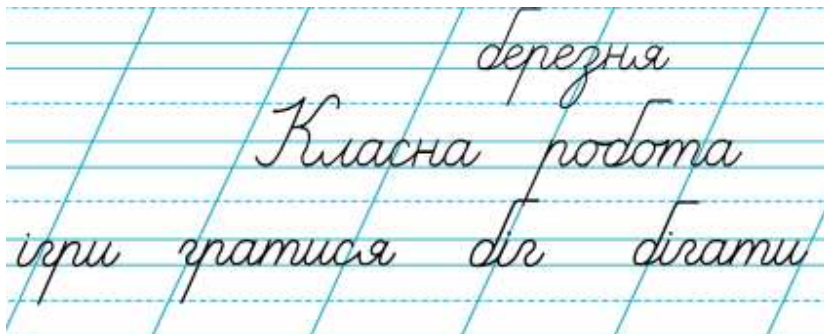 березня
Класна робота
ігри гратися біг бігати